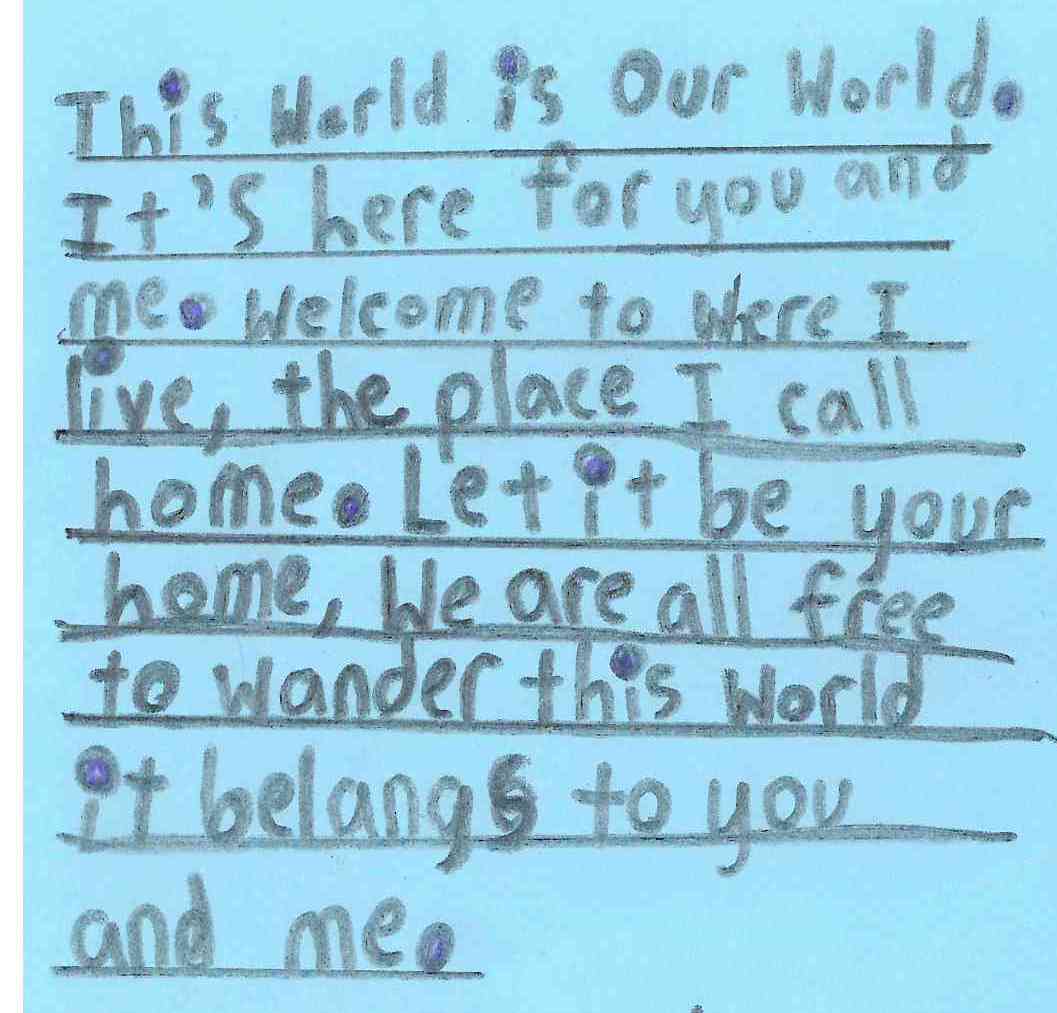 This World is Our World.
It's here for you and
me. Welcome to where I
live, the place I call
home. Let it be your
home, We are all free
to wander this World
it belangs to you
and me.